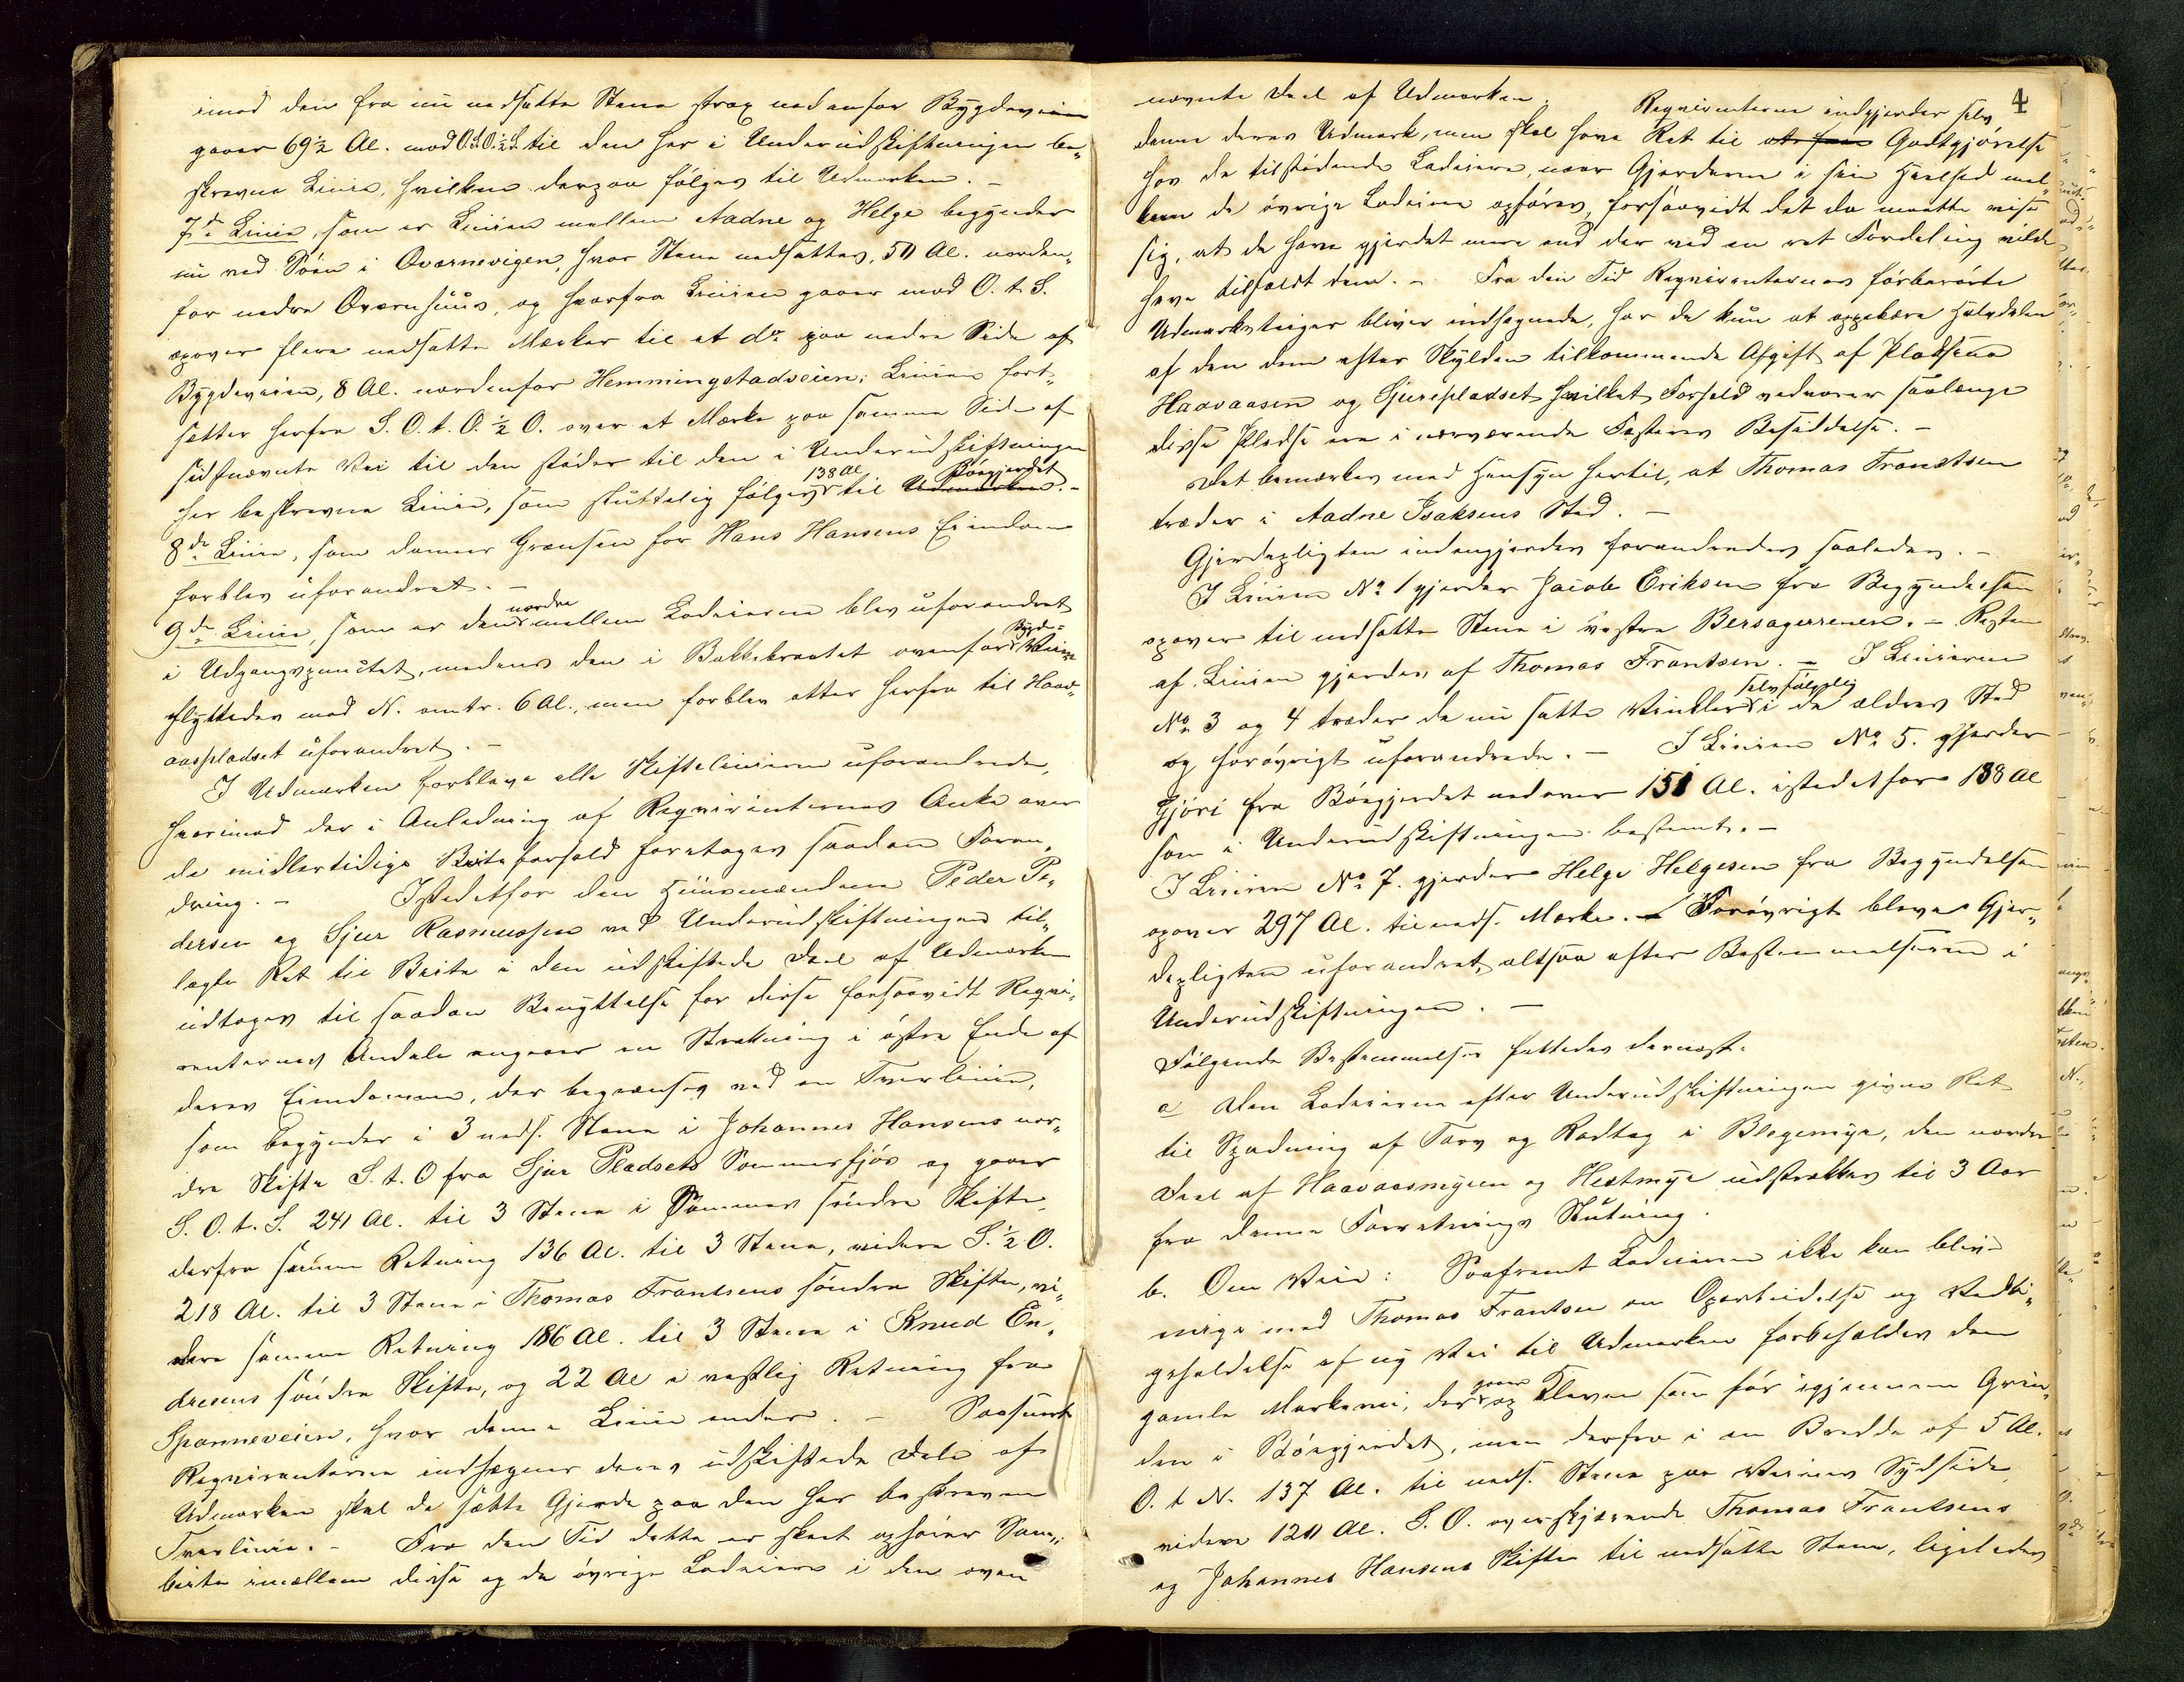 imod den fra nu nedsatte Stene strax nedenfor Bygdeveien
gaaer 69½ Al. mod O.t.O.½S. til den her i Underudskiftningen be„
skrevne Linie, hvilken derpaa følges til Udmarken. –
7de Linie, som er Linien mellem Aadne og Helge begynder
nu ved Søen i Qværnevigen, hvor Stene nedsattes, 50 Al. norden„
for nedre Qværnhuus, og hvorfra Linien gaaer mod O. t. S.
opover flere nedsatte Mærker til et do paa nedre Side af
Bygdeveien, 8 Al. nordenfor Hemmingstadveien; Linien fort„
sætter herfra S. O. t. O. ½ O. over et Mærke paa samme Side af
sidstnævnte Vei til den støder til den i Underudskiftningen
her beskrevne Linie, som sluttelig følges 138 Al til Udmarken Bøegjerdet. –
8de Linie, som danner Grændsen for Hans Hansens Eiendom
forblev uforandret. –
9de Linie, som er den nordre mellem Lodeierne blev uforandret
i Udgangspunctet, medens den i Bakkebrattet ovenfor Bygde= Veien
flyttedes mod N. omtr. 6 Al., men forblev etter herfra til Haav„
aaspladset uforandret. –
I Udmarken forbleve alle Skiftelinierne uforandrede,
hvorimod der i Anledning af Reqvirenternes Anke over
de midlertidige Beiteforhold foretages saadan Foran„
dring. – Istedetfor den Huusmændene Peder Pe„
dersen og Sjur Rasmussen ved Underudskiftningen til„
lagte Ret til Beite i den udskiftede Deel af Udmarken
udtages til saadan Benyttelse for disse forsaavidt Reqvi„
renternes Andele angaaer en Strækning i østre Ende af
deres Eiendomme, der begrændses ved en Tverlinie,
som begynder i 3 neds. Stene i Johannes Hansens nor„
dre Skifte S. t. O fra Sjur Pladsets Sommerfjøs og gaaer
S. O. t. S. 241 Al. til 3 Stene i Sammes søndre Skifte,
derfra samme Retning 136 Al. til 3 Stene, videre S. ½ O.
218 Al. til 3 Stene i Thomas Frantsens søndre Skifte, vi„
dere samme Retning 186 Al. til 3 Stene i Knud En„
dresens søndre Skifte, og 22 Al i vestlig Retning fra
Spanneveien, hvor denne Linie ender. – Saasnart
Reqvirenterne indhegner deres udskiftede Dele af
Udmarken skal de sætte Gjerde paa den her beskreven
Tverlinie. – Fra den Tid dette er skeet ophører Sam„
beite imellem disse og de øvrige Lodeiere i den oven
4
nævnte Deel af Udmarken. Reqvirenterne indgjerder selv
denne deres Udmark, men skal have Ret til at faae Godtgjørelse
hos de tilstødende Lodeiere, naar Gjerderne i sin Heelhed mel„
lem de øvrige Lodeiere opføres, forsaavidt det da maatte vise
sig, at de have gjerdet mere end der ved en ret Fordeling vilde
have tilfaldt dem. – Fra den Tid Reqvirenternes førberørte
Udmarksteiger bliver indhegnede, har de kun at oppebære Halvdelen
af den dem efter Skylden tilkommende Afgift af Pladsene
Haavaasen og Sjurepladset, hvilket Forhold vedvarer saalænge
disse Pladse ere i nærværende Fæsteres Besiddelse. –
Det bemærkes med Hensyn hertil, at Thomas Frantsen
træder i Aadne Isaksens Sted. –
Gjerdepligten indengjerdes forandredes saaledes. –
I Linien No 1 gjerder Jacob Eriksen fra Begyndelsen
opover til nedsatte Stene i vestre Bersagerrenen. – Resten
af Linien gjerdes af Thomas Frantsen. – I Linierne
No 3 og 4 træder de nu satte Vinkler selvfølgelig i de ældres Sted
og forøvrigt uforandrede. – I Linien No 5. gjerder
Gjøri fra Bøegjerdet nedover 151 Al. istedetfor 138 Al
som i Underudskiftningen bestemt. –
I Linien No 7. gjerder Helge Helgesen fra Begyndelsen
opover 297 Al. til neds. Mærke. – Forøvrigt bleve Gjer„
depligten uforandret, altsaa efter Bestemmelserne i
Underudskiftningen. –
Følgende Bestemmelser fattedes dernæst.
a Den Lodeierne efter Underudskiftningen givne Ret
til Spadning af Torv og Rodtag i Blegemyr, den nordre
Deel af Haavaasmyren og Hestmyr udstrækkes til 3 Aar
fra denne Forretnings Slutning.
b. Om Veie: Saafremt Lodeierne ikke kan blive
enige med Thomas Frantsen om Oparbeidelse og Vedli„
geholdelse af ny Vei til Udmarken forbeholdes den
gamle Markevei, der gaaer op Kleven som før igjennem Grin„
den i Bøegjerdet, men derfra i en Bredde af 5 Al.
O. t N. 137 Al. til neds. Stene paa Veiens Sydside,
videre 120 Al. S. O. overskjærende Thomas Frantsens
og Johannes Hansens Skifter til nedsatte Stene, ligeledes